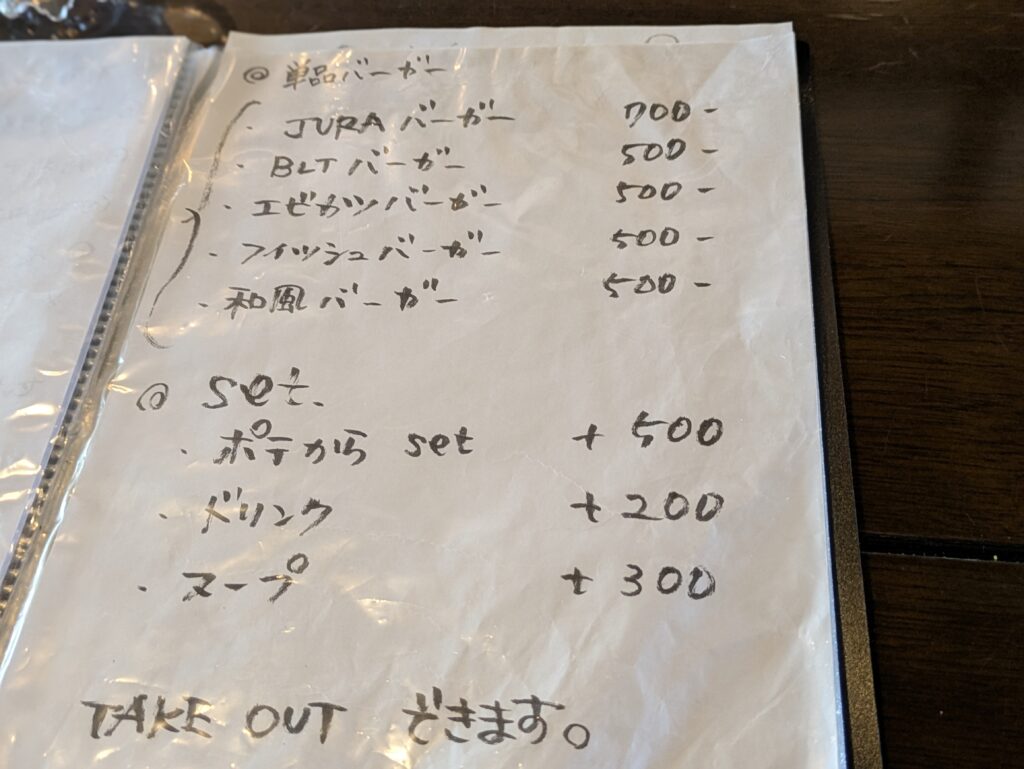 ◎ 単品バーガー
・ JURA バーガー 700-
・ BLTバーガー 500-
・ エビカツバーガー 500-
・ フィッシュバーガー 500-
・ 和風バーガー 500-
◎ set.
・ ポテから set + 500
・ ドリンク + 200
・ スープ + 300
TAKE OUT できます。